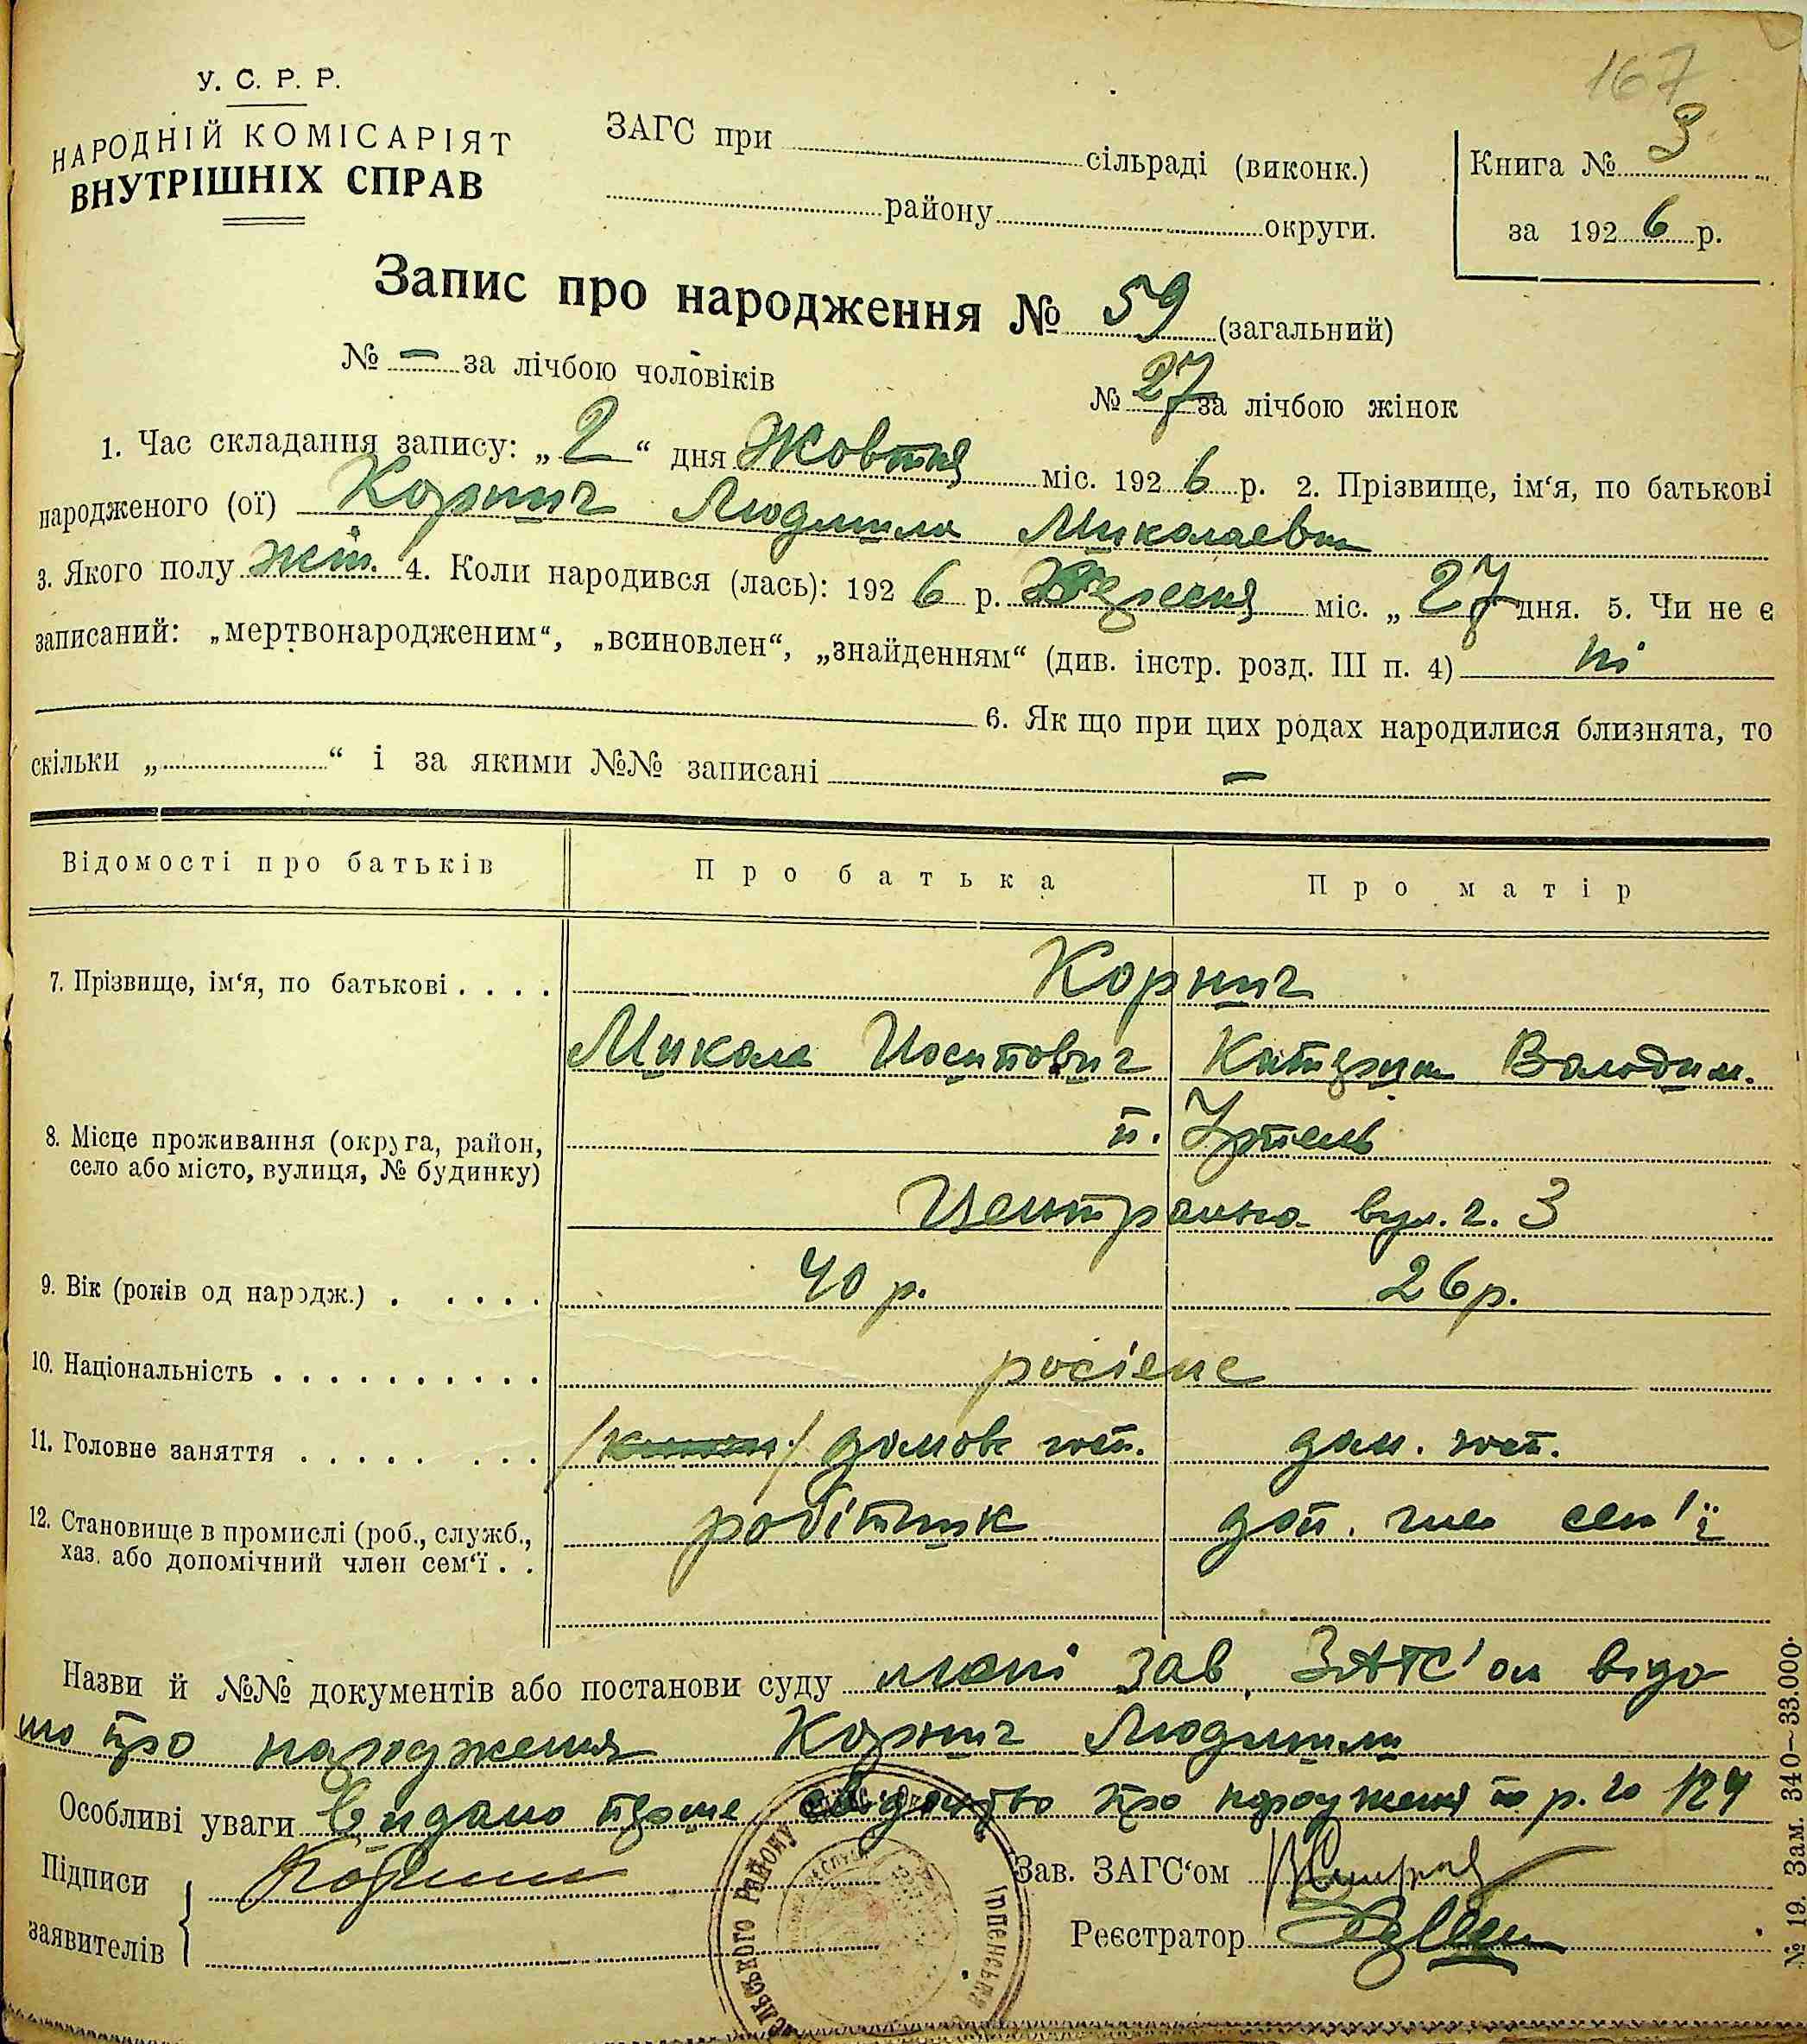 167
У. С. Р. Р.
НАРОДНІЙ КОМІСАРІЯТ
ВНУТРІШНІХ СПРАВ
ЗАГС при сільраді (виконк.)
району округи.
Книга № 3
за 1926 р.
Запис про народження № 59 (загальний)
№ – за лічбою чоловіків
№ 27 за лічбою жінок
1. Час складання запису: „2“ дня Жовтня міс. 1926 р. 2. Прізвище, ім‘я, по батькові
народженого (ої) Корнич Людмила Миколаевна
3. Якого полу жін. 4. Коли народився (лась): 1926 р. Вересня міс. „27 дня. 5. Чи не є
записаний: „мертвонародженим“, „всиновлен“, „знайденням“ (див. інстр. розд. III п. 4) ні
6. Як що при цих родах народилися близнята, то
скільки „ “ і за якими №№ записані –
Відомості про батьків Про батька Про матір
7. Прізвище, ім‘я, по батькові . . . . Корнич
Микола Иосипович Катерина Володим.
8. Місце проживання (округа, район, п. Ірпень
село або місто, вулиця, № будинку)
Центральна вул. ч. 3
9. Вік (років од народж.) . . . . . 40 р. 26 р.
10. Національність . . . . . . . . . . росіене
11. Головне заняття . . . . . . . . домов госп. дом. госп.
12. Становище в промислі (роб., служб., робітник доп. член сем'ї
хаз. або допомічний член сем‘ї . .
Назви й №№ документів або постанови суду мені зав. ЗАГС'ом відо
мо про народження Корнич Людмили
Особливі уваги Видано перше свідоцтво про народження по р. за 124
Підписи
заявителів
Зав. ЗАГС‘ом
Реєстратор
Району Ірпенська
№ 19. Зам. 340—33.000.